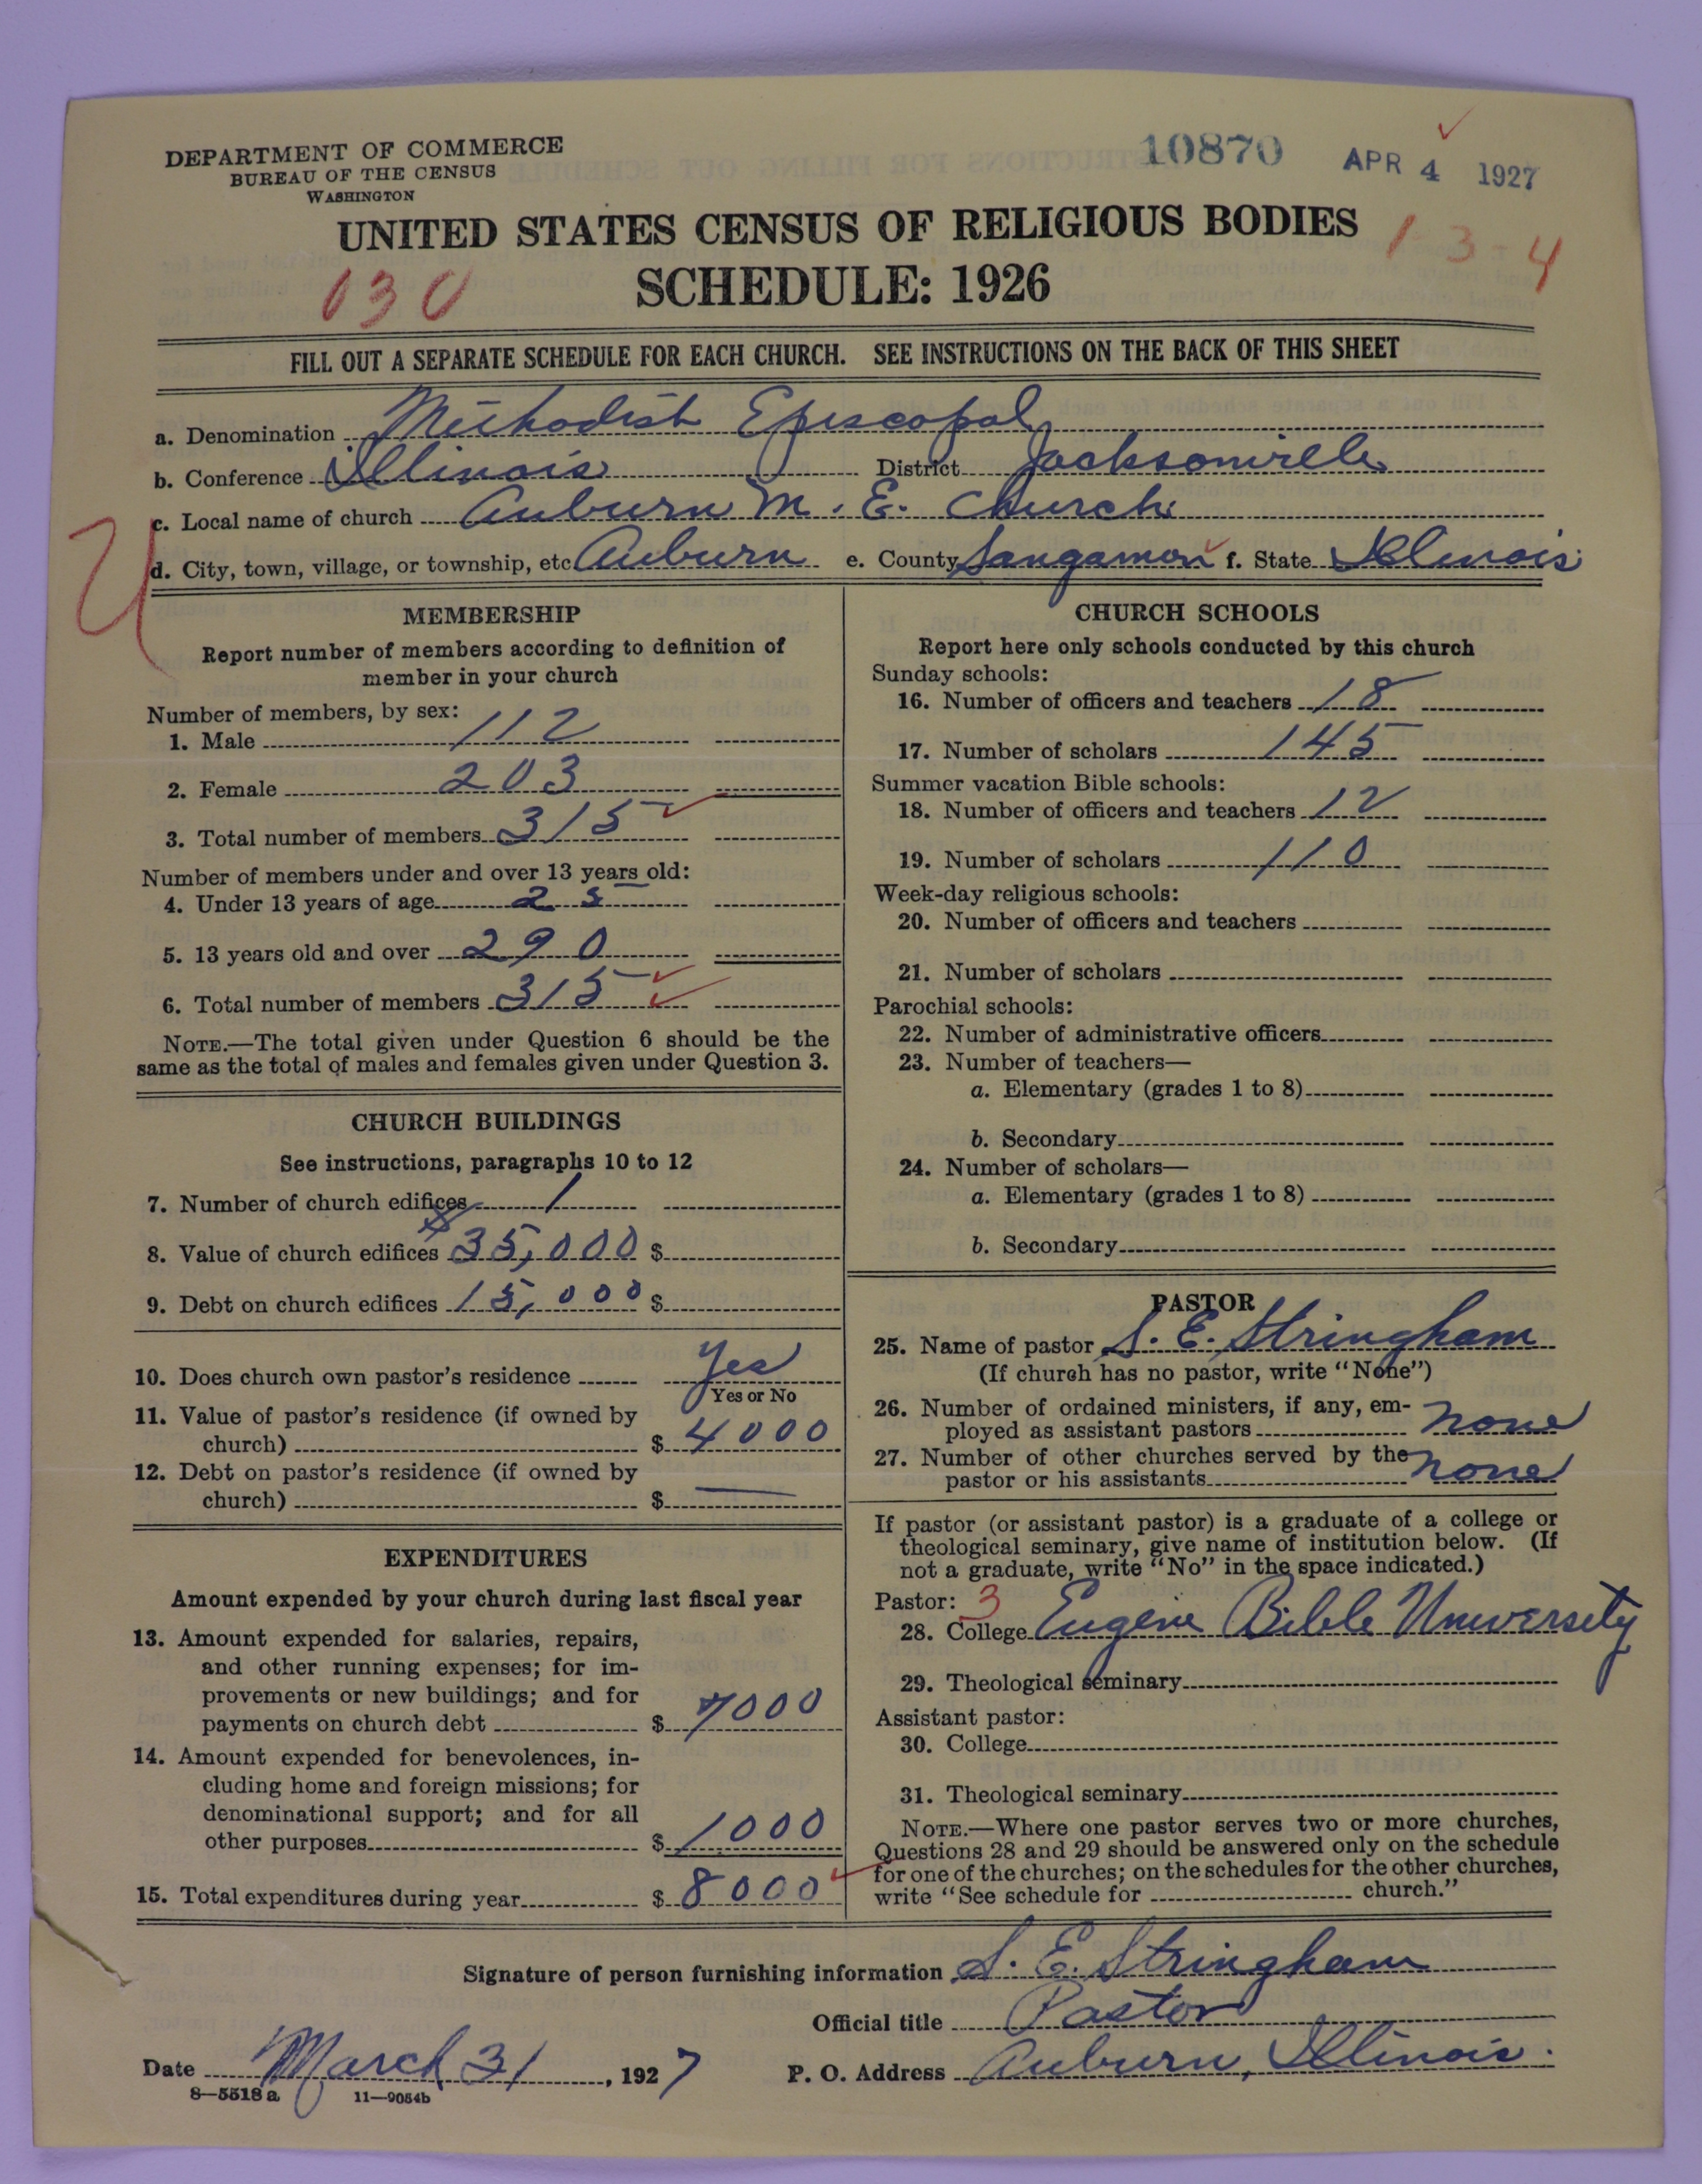 DEPARTMENT OF COMMERCE
BUREAU OF THE CENSUS
WASHINGTON
10870
APR 4 1927
UNITED STATES CENSUS OF RELIGIOUS BODIES
1-3-4
130
SCHEDULE: 1926
FILL OUT A SEPARATE SCHEDULE FOR EACH CHURCH. SEE INSTRUCTIONS ON THE BACK OF THIS SHEET
a. Denomination Methodist Episcopal
b. Conference Illinois District Jacksonville
c. Local name of church Auburn M. E. Church
d. City, town, village, or township, etc. Auburn e. County Sangamon f. State Illinois
MEMBERSHIP
Report number of members according to definition of
member in your church
Number of members, by sex:
1. Male 112
2. Female 203
3. Total number of members 315
Number of members under and over 13 years old:
4. Under 13 years of age 25
5. 13 years old and over 290
6. Total number of members 315
NOTE.—The total given under Question 6 should be the
same as the total of males and females given under Question 3.
CHURCH BUILDINGS
See instructions, paragraphs 10 to 12
7. Number of church edifices 1
8. Value of church edifices $35,000 $
9. Debt on church edifices 15,000 $
10. Does church own pastor's residence Yes
Yes or No
11. Value of pastor's residence (if owned by
church) $ 4000
12. Debt on pastor's residence (if owned by
church) $ —
EXPENDITURES
Amount expended by your church during last fiscal year
13. Amount expended for salaries, repairs,
and other running expenses; for im-
provements or new buildings; and for
payments on church debt $ 7000
14. Amount expended for benevolences, in-
cluding home and foreign missions; for
denominational support; and for all
other purposes $ 1000
15. Total expenditures during year $ 8000
CHURCH SCHOOLS
Report here only schools conducted by this church
Sunday schools:
16. Number of officers and teachers 18
17. Number of scholars 145
Summer vacation Bible schools:
18. Number of officers and teachers 12
19. Number of scholars 110
Week-day religious schools:
20. Number of officers and teachers
21. Number of scholars
Parochial schools:
22. Number of administrative officers
23. Number of teachers—
a. Elementary (grades 1 to 8)
b. Secondary
24. Number of scholars—
a. Elementary (grades 1 to 8)
b. Secondary
PASTOR
25. Name of pastor S. E. Stringham
(If church has no pastor, write "None")
26. Number of ordained ministers, if any, em-
ployed as assistant pastors none
27. Number of other churches served by the
pastor or his assistants none
If pastor (or assistant pastor) is a graduate of a college or
theological seminary, give name of institution below. (If
not a graduate, write "No" in the space indicated.)
Pastor: 3
28. College Eugene Bible University
29. Theological seminary
Assistant pastor:
30. College
31. Theological seminary
NOTE.—Where one pastor serves two or more churches,
Questions 28 and 29 should be answered only on the schedule
for one of the churches; on the schedules for the other churches,
write "See schedule for church."
Signature of person furnishing information S. E. Stringham
Official title Pastor
Date March 31, 1927 P. O. Address Auburn, Illinois.
8—5518 a 11—9054b